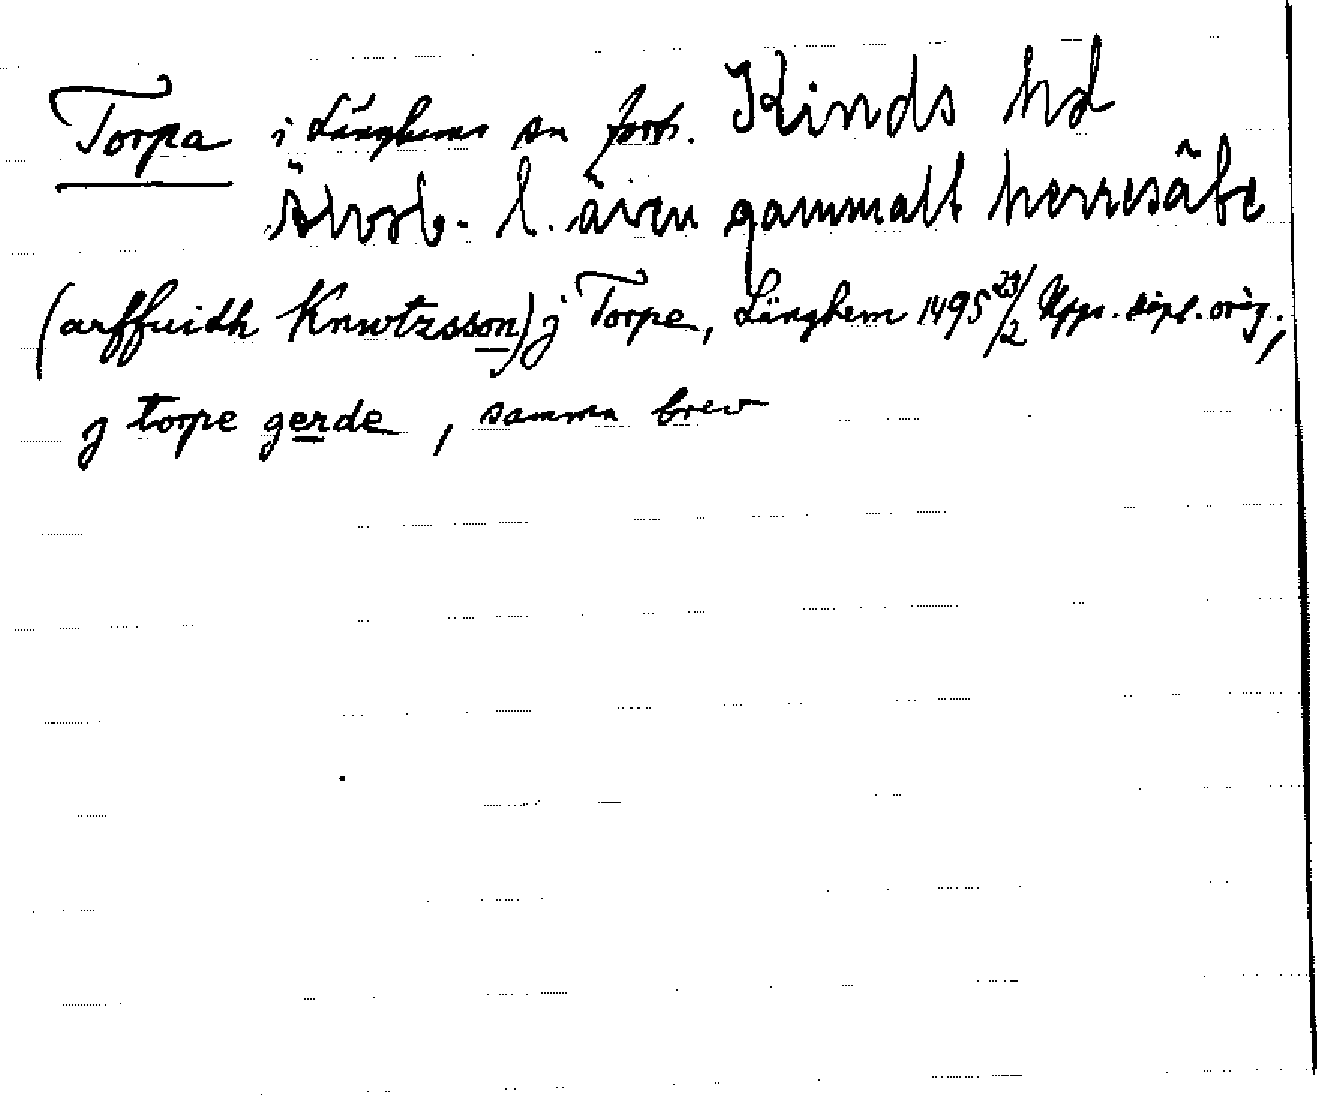 Torpa i Länghems sn forts. Kinds hd
Älvsb. l. även gammalt herresäte
(arffuidh Knwtzsson) j Torpe, Länghem 1495 23/2 Upps. dipl. orig.,
j torpe gerde, samma brev